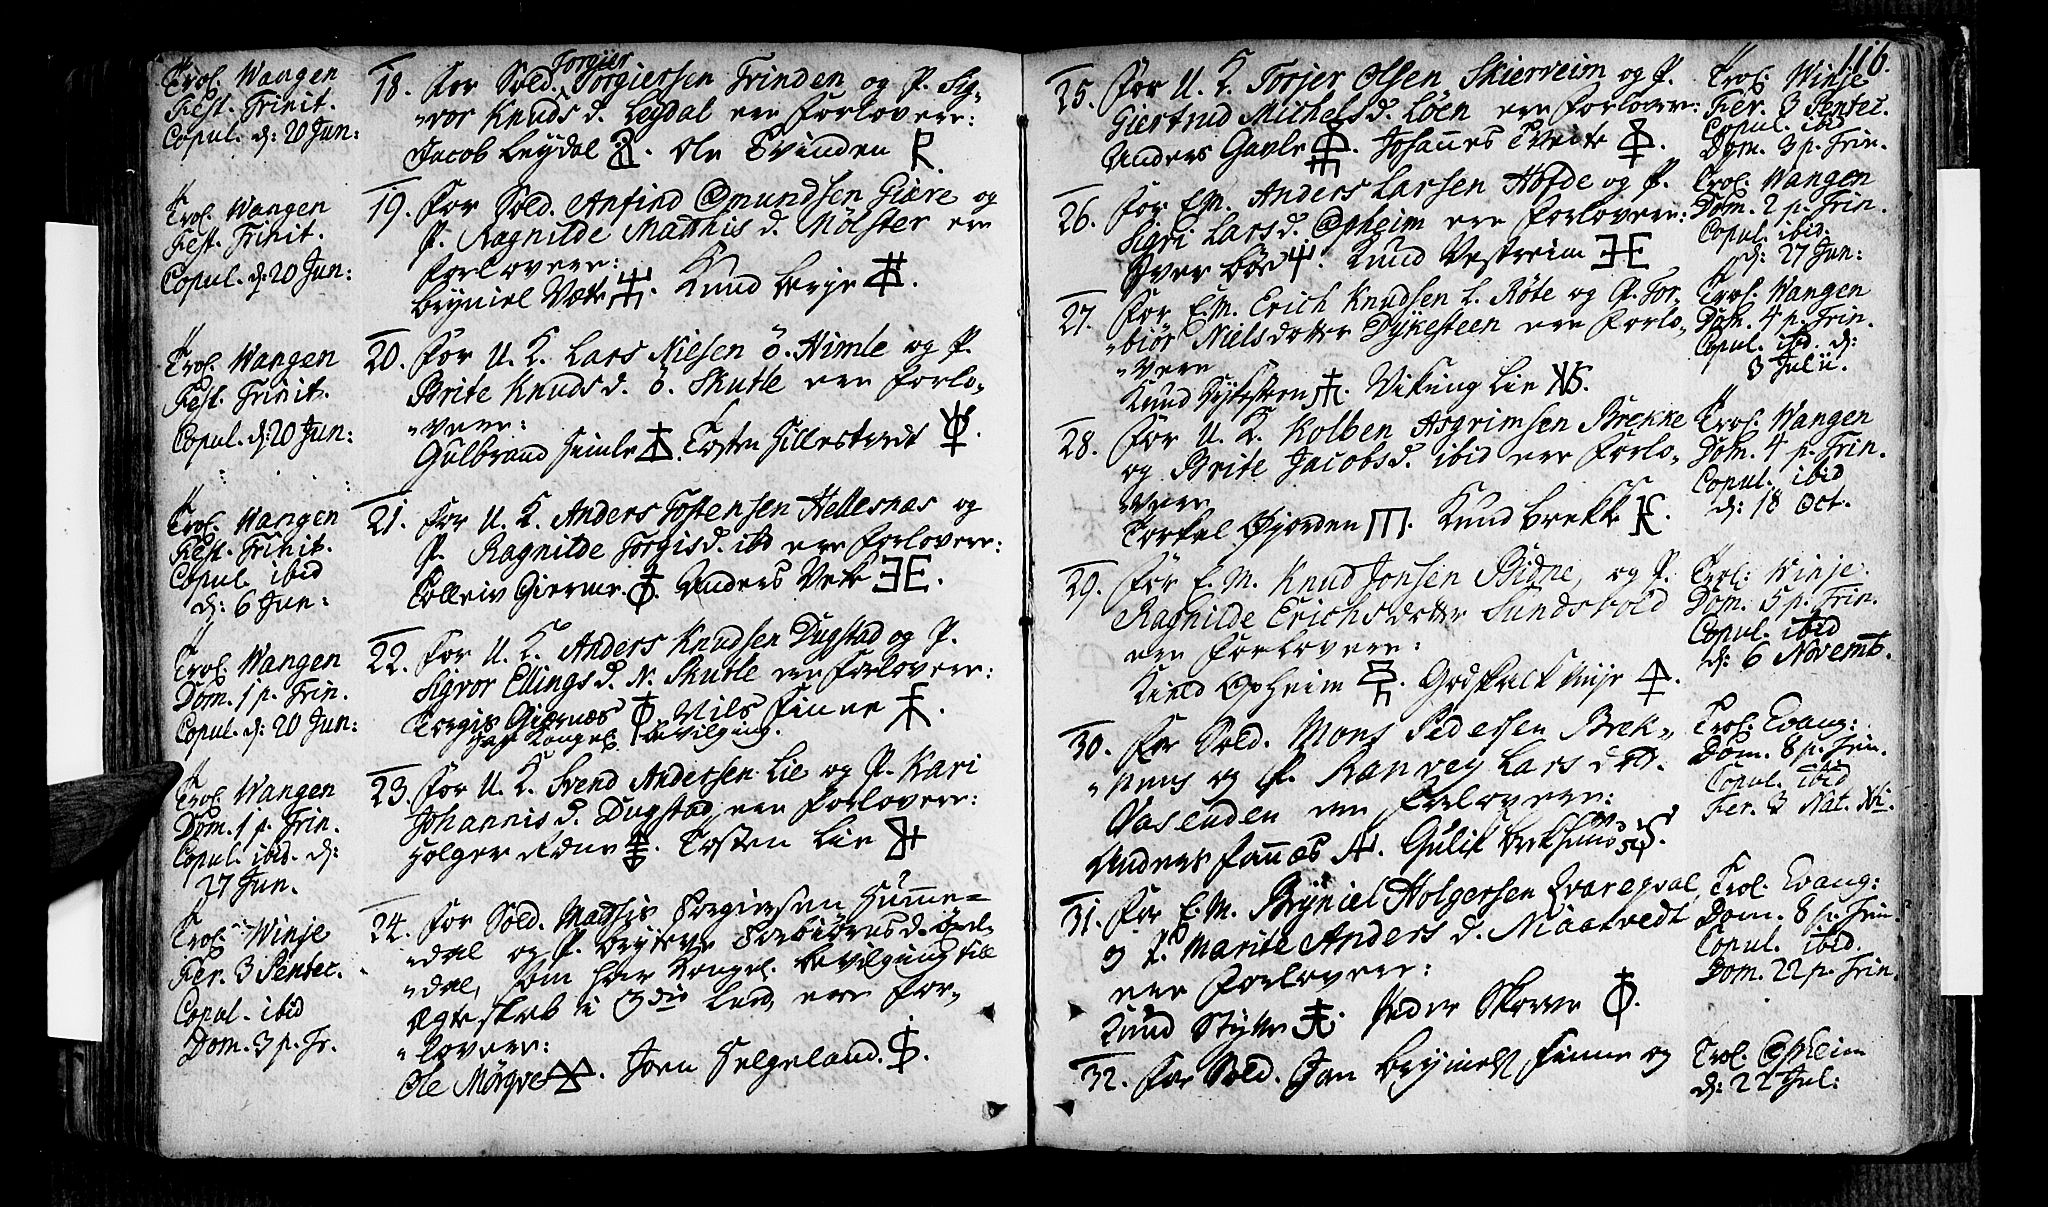 Trol. Wangen
Fest. Trinit.
Copul. d: 20 Jun:
18. For Sold. Torgier Torgiersen Trinden og P. Sig-
vor Knuds d. Legdal ere Forlovere:
Jacob Leydal. Ole Tvinden
Trol. Wangen
Fest. Trinit.
Copul. d: 20 Jun:
19. For Sold. Anfind Omundsen Giøre og
P. Ragnilde Matthis d. Mölster ere
Forlovere:
Bryniel Væte. Knud
Trol. Wangen
Fest. Trinit.
Copul. d: 20 Jun:
20. For U. K. Lars Nilsen ö. Himle og P.
Brite Knuds d. ö. Skutle ere Forlo-
vere:
Gulbrand Himle. Tosten Hillestvedt
Trol. Wangen
Fest. Trinit.
Copul. ibid
d: 6 Jun:
21. For U. K. Anders Tostensen Hellesnas og
P. Ragnilde Torgis d. ibd ere Forlovere:
Tolleiv. Anders
Trol. Wangen
Dom. 1 p. Trin.
Copul. d: 20 Jun:
22. For U. K. Anders Knudsen Dugstad og P.
Sigvor Ellings d. N. Skutle ere Forlovere:
Torgis Giernæs Nils Finne
har Kongel. bevilging.
Trol. Wangen
Dom. 1 p. Trin.
Copul. ibid. d:
27 Jun.
23. For U. K. Svend Andersen Lie og P. Kari
Johannis d. Dugstad ere Forlovere:
Holger. Tosten Lie
Trol. Winje
Fer. 3 Pentec.
Copul. ibid
Dom. 3 p. Tr.
24. For Sold. Matthis Torgiersen Humme-
dal og P.
dal, som har Kongel. bevilgning till
Ægteskab i 3die Leed, ere For-
lovere:
Ole Mørqve. Joen Helgeland.
116.
25. For U. K. Torjer Olsen Skierveim og P.
Giertrud Michels d. Löen ere Forlovere:
Anders Gavle. Johannes Tveite
Trol. Winje
Fer. 3 Pentec.
Copul. ibid
Dom. 3 p. Trin.
26. For E. M. Anders Larsen Hofde og P.
Sigri Lars d. Opheim ere Forlovere:
Iver Böe. Knud Vestreim
Trol. Wangen
Dom. 2 p. Trin.
Copul. ibid.
d: 27 Jun:
27. For E. M. Erich Knudsen L. Röte og P. Tor-
biör Nielsdotter Dykesteen ere Forlo-
vere
Knud Dykesteen. Viking Lie
Trol. Wangen
Dom. 4 p. Trin.
Copul. ibid. d:
3 Julii.
28. For U. K. Kolben Asgrimsen Brekke
og Brite Jacobs d. ibid ere Forlo-
vere
Torkel Gjorden. Knud Brekke
Trol. Wangen
Dom. 4 p. Trin.
Copul. ibid
d: 18 Oct.
29. For E. M. Knud Jonsen Bidne, og P.
Ragnilde Erichsdotter Sundsvold
ere Forlovere:
Knud Opheim. Godskalk Vinje
Trol: Winje.
Dom. 5 p. Trin.
Copul. ibid
d: 6 Novemb.
30. For Sold. Mons Pedersen Brek-
huus og P. Ranvey Lars dott.
Vasenden ere Forlovere:
Anders. Gulik Brekhuus
Trol. Evang:
Dom. 8 p. Trin.
Copul. ibid
Fer. 3 Nat. Xti.
31. For E. M. Bryniel Holgersen Qvareqval
o P. Marite Anders d. Maatvedt
ere Forlovere:
Knud Styve. Peder Skorve
Trol. Evang:
Dom. 8 p. Trin.
Copul. ibid.
Dom. 22 p. Trin.
32. For Sold. Jon Bryniels. Finne og
Trol. Opheim
d: 22 Jul: